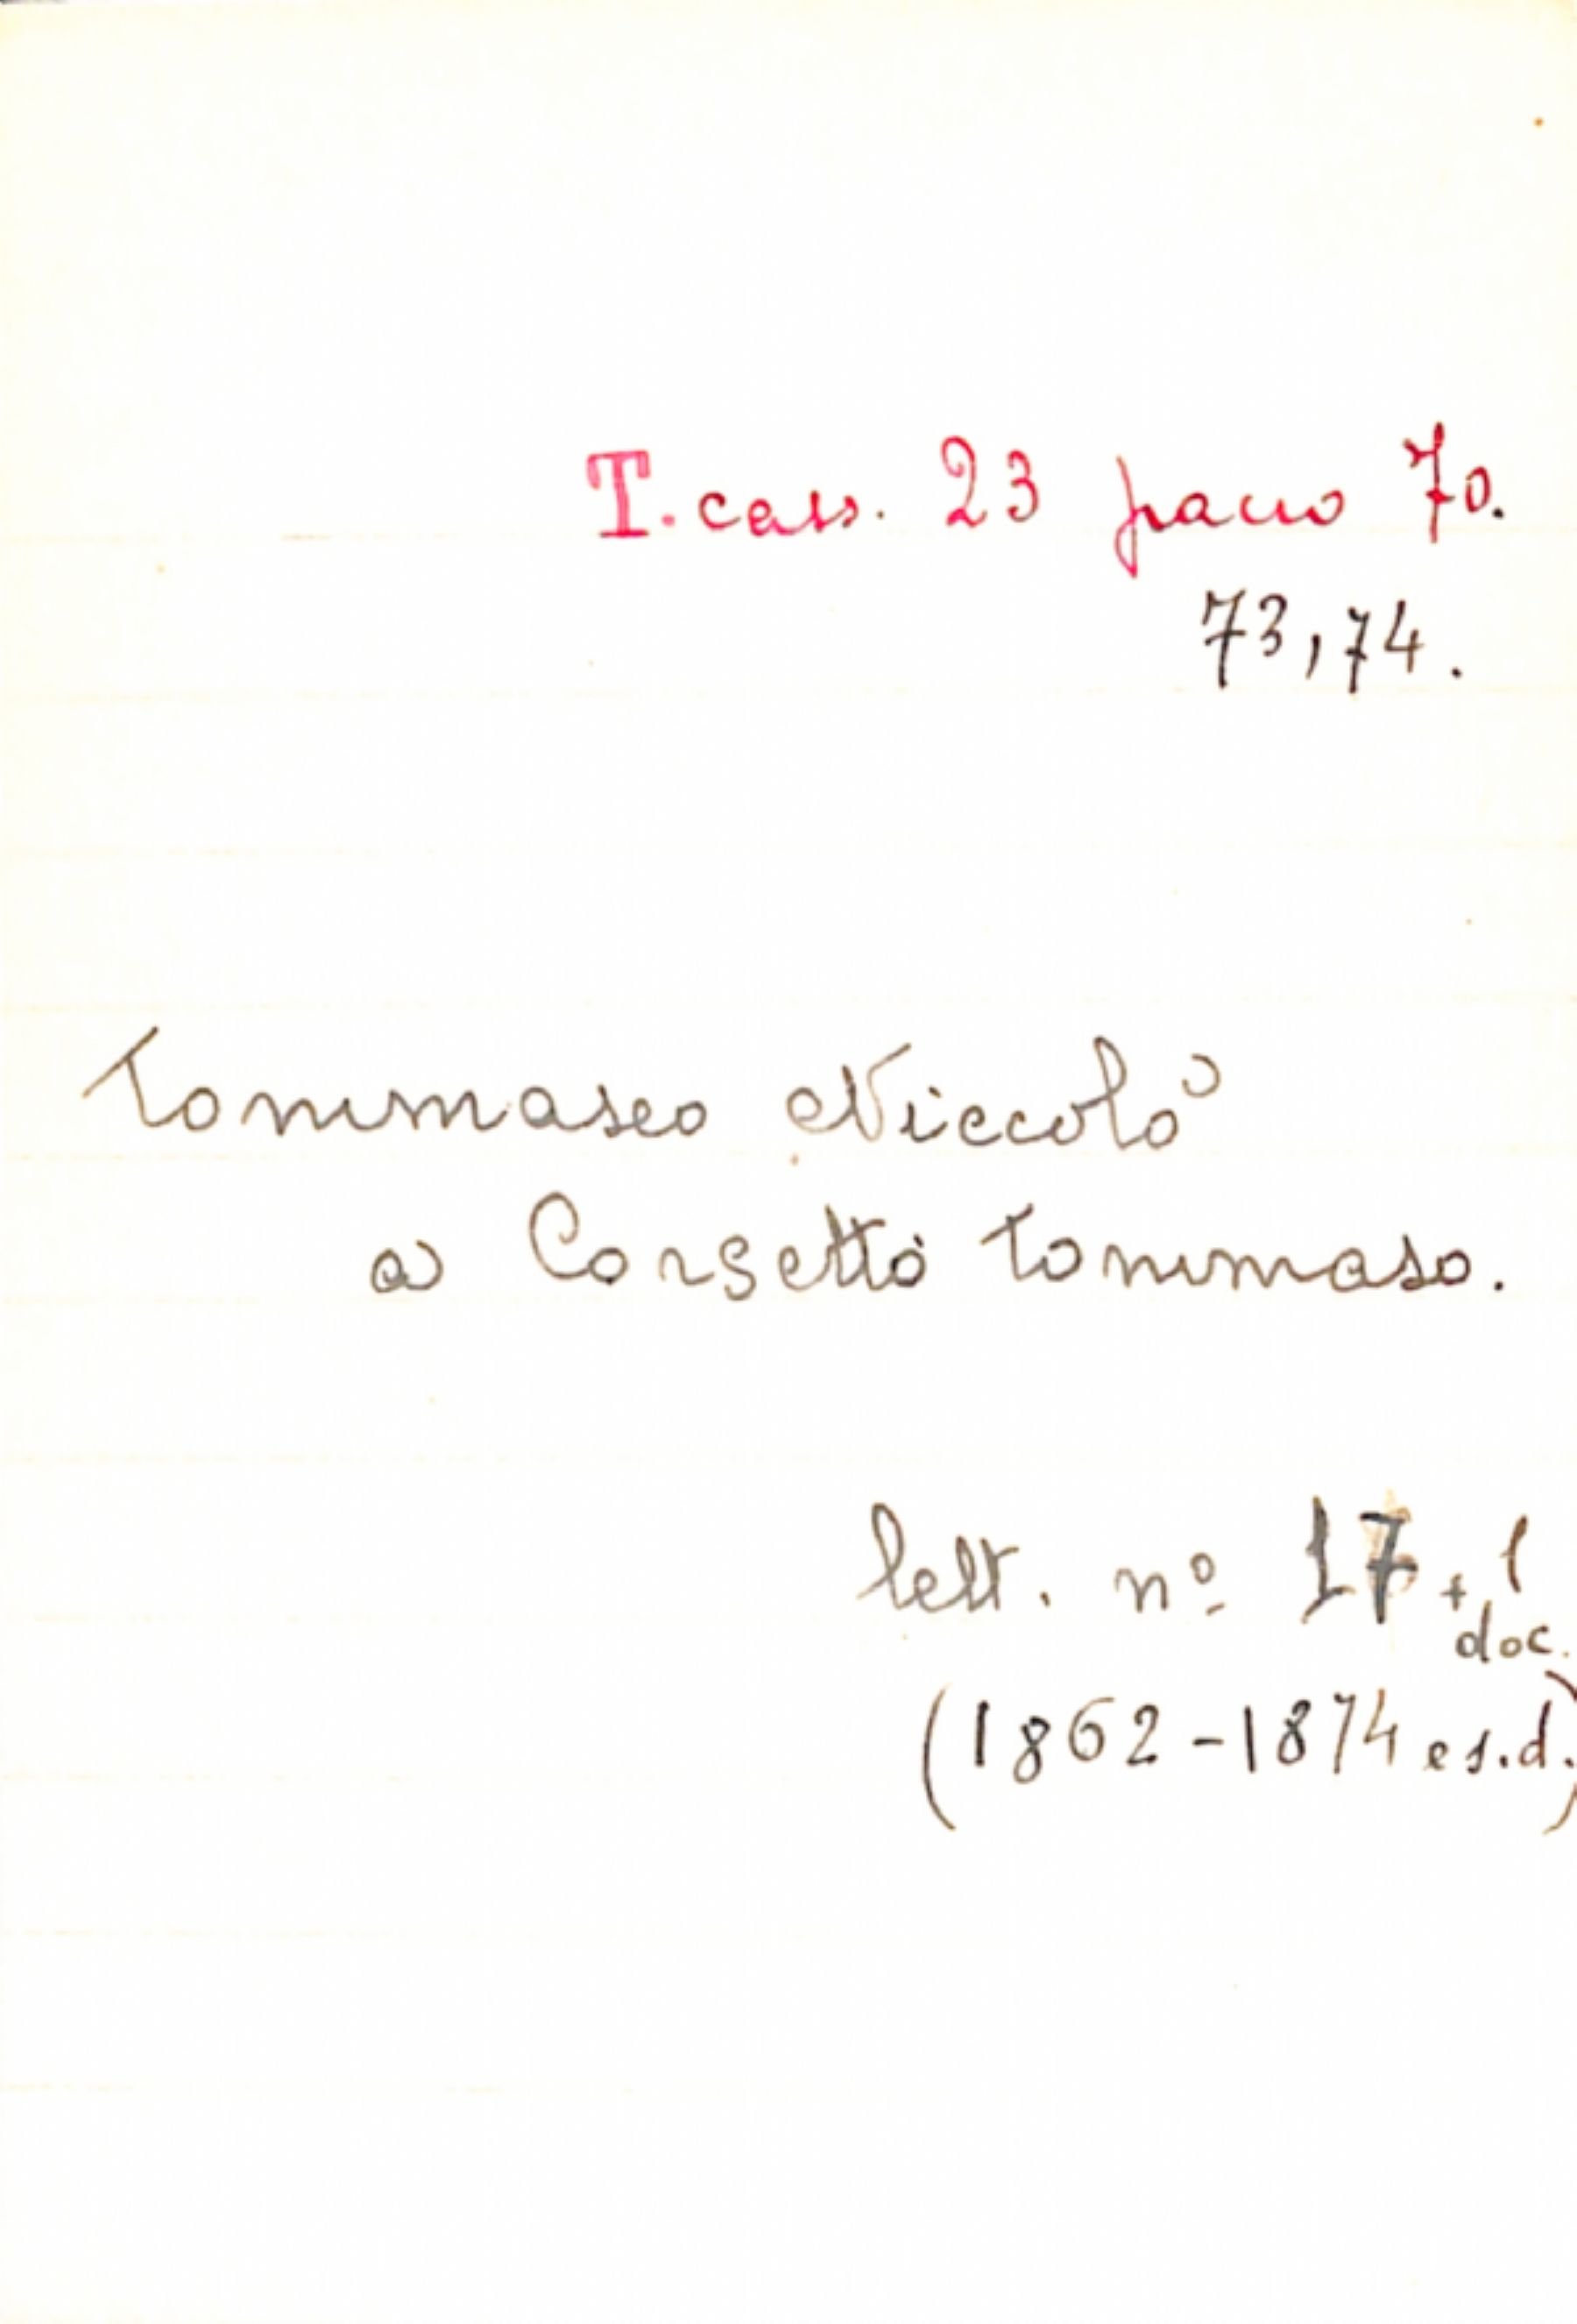 T. cass. 23 pacco 70.
73, 74.
Tommaseo Niccolò
a Corsetto Tommaso.
lett. nº 17 + 1
doc.
(1862-1874 e s.d.)